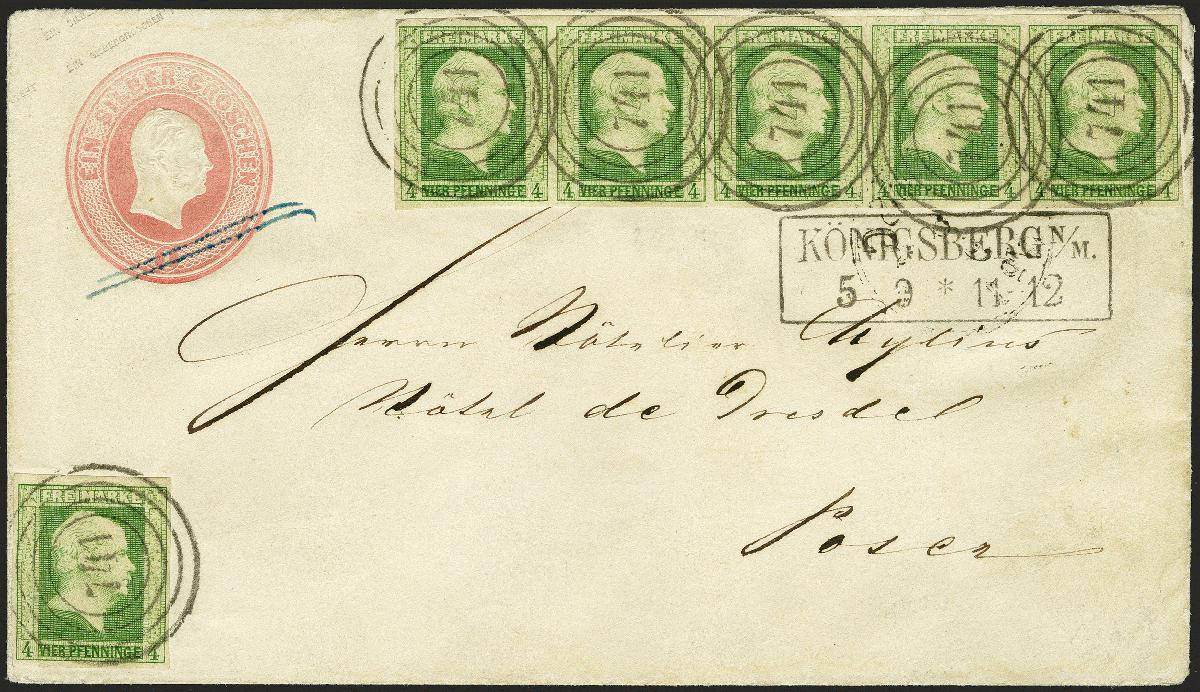 EIN SILBERGROSCHEN
EIN SILBERGROSCHEN
FREIMARKE FREIMARKE FREIMARKE FREIMARKE FREIMARKE
741 741 741 741 741
4 VIER PFENNINGE 4 4 VIER PFENNINGE 4 4 VIER PFENNINGE 4 4 VIER PFENNINGE 4 4 VIER PFENNINGE 4
KÖNIGSBERG N/M.
5 9 * 11-12
Herrn Hôtelier Mylius
Hôtel de Dresde
Posen
FREIMARKE
741
4 VIER PFENNINGE 4